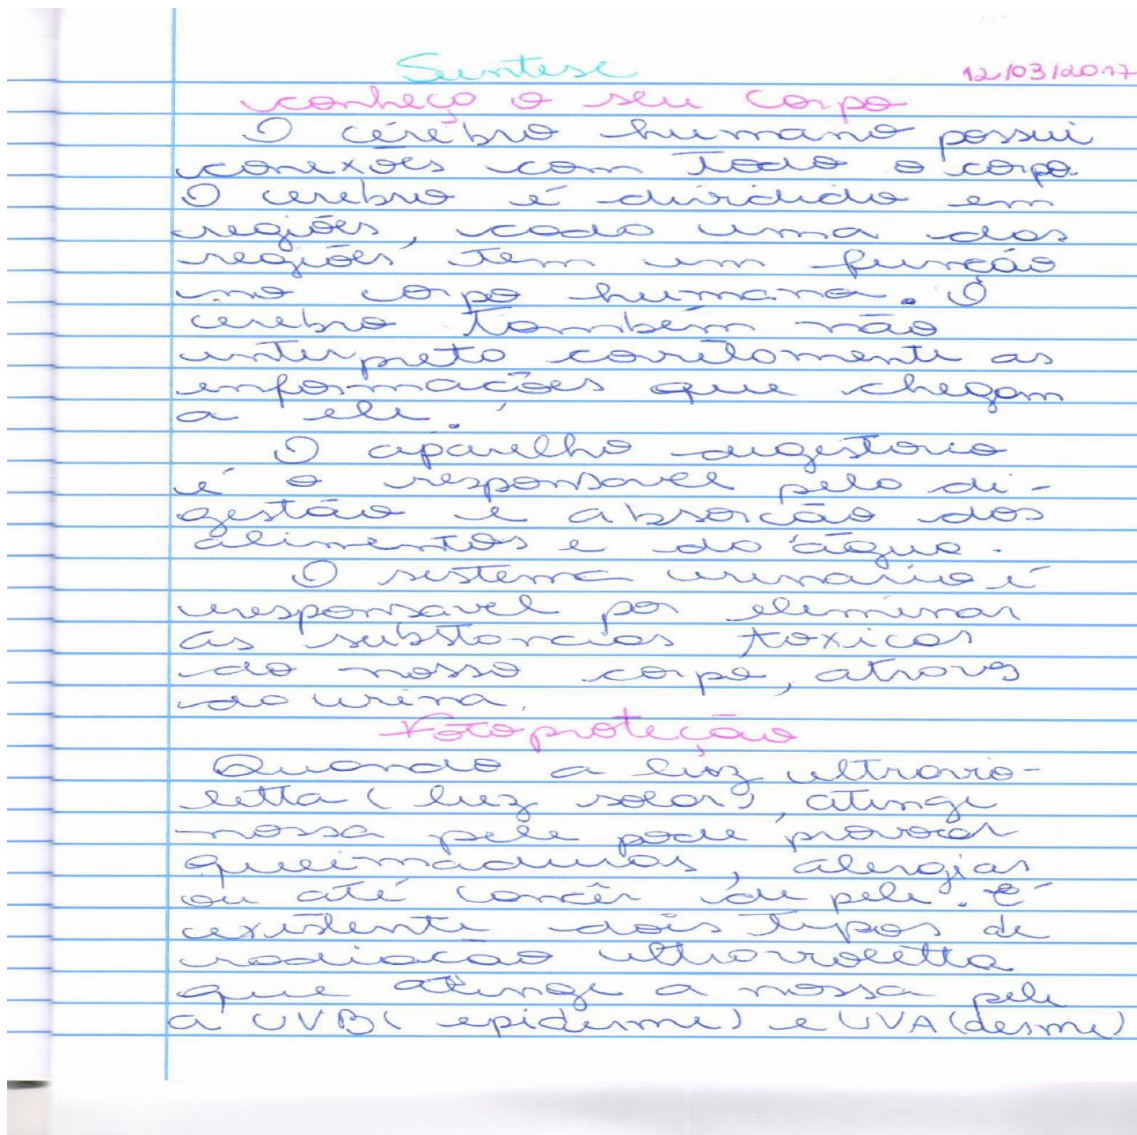 Sintese 12/03/2017
conheça o seu corpo
O cérébro humano possui
conexões com todo o corpo.
O cerebro é dividido em
regiões, cada uma das
regiões tem um função
no corpo humano. O
cerebro também não
interpreta corretamente as
informações que chegam
a ele.
O aparelho digestorio
é o responsavel pela di-
gestão e absorcão dos
alimentos e da água.
O sistema urinario é
responsavel por eliminar
as substancias toxicas
do nosso corpo, atraves
da urina.
Fotoproteção
Quando a luz ultravio-
letta (luz solar), atinge
nossa pele pode provocar
queimaduras, alergias
ou até cancêr de pele. É
existente dois tipos de
radiacao ultravioletta
que atinge a nossa pele
a UVB( epiderme) e UVA (desme)